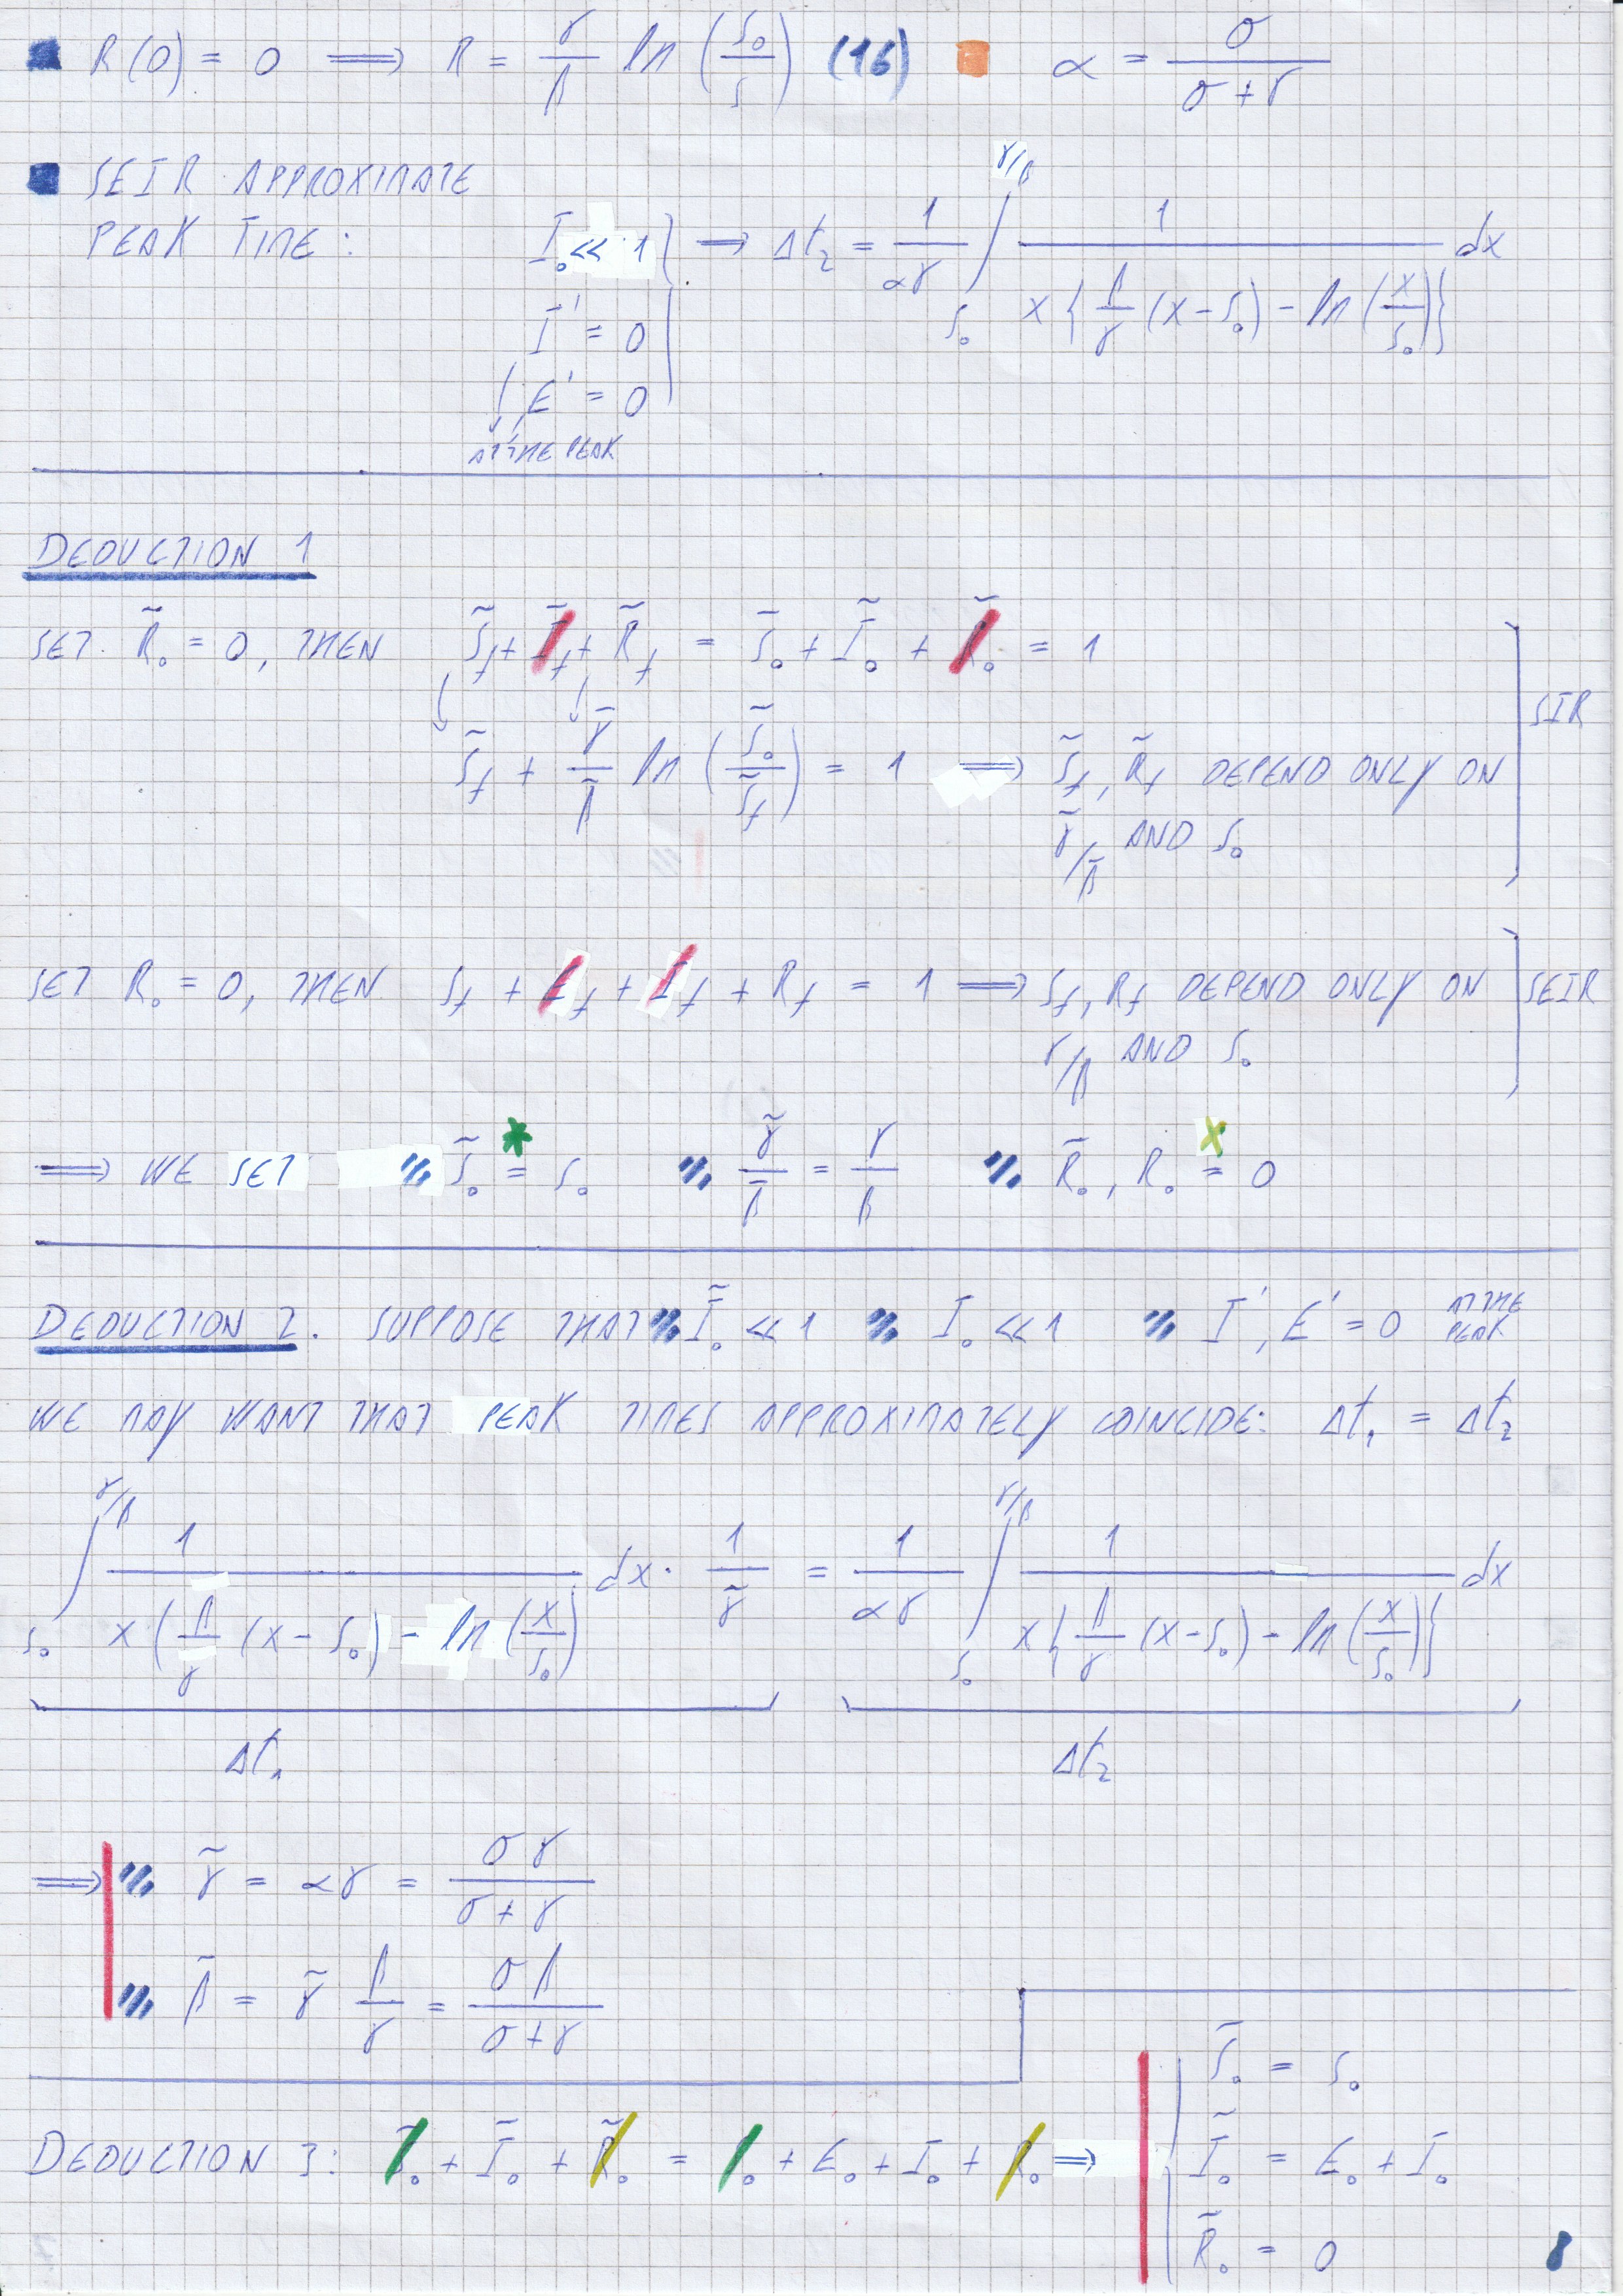 R(0) = 0 ⟹ R = γ/β ln (S₀/S) (16) α = σ/(σ+γ)
SEIR APPROXIMATE
PEAK TIME: I₀ << 1 ⟶ Δt₂ = 1/(αγ) ∫_{S₀}^{γ/β} 1/(x {β/γ (x - S₀) - ln (x/S₀)}) dx
I' = 0
E' = 0
AT THE PEAK
DEDUCTION 1
SET R̃₀ = 0, THEN S̃f + Ĩf + R̃f = S̃₀ + Ĩ₀ + R̃₀ = 1
S̃f + γ̃/β̃ ln (S̃₀/S̃f) = 1 ⟹ S̃f, R̃f DEPEND ONLY ON SIR
γ̃/β̃ AND S₀
SET R₀ = 0, THEN Sf + Ef + If + Rf = 1 ⟹ Sf, Rf DEPEND ONLY ON SEIR
γ/β AND S₀
⟹ WE SET S̃₀ =* S₀ γ̃/β̃ = γ/β R̃₀, R₀ =ˣ 0
DEDUCTION 2. SUPPOSE THAT Ĩ₀ << 1 I₀ << 1 I', E' = 0 AT THE PEAK
WE MAY WANT THAT PEAK TIMES APPROXIMATELY COINCIDE: Δt₁ = Δt₂
∫_{S₀}^{γ/β} 1/(x (β/γ (x - S₀) - ln (x/S₀))) dx · 1/γ̃ = 1/(αγ) ∫_{S₀}^{γ/β} 1/(x {β/γ (x - S₀) - ln (x/S₀)}) dx
Δt₁ Δt₂
⟹ γ̃ = αγ = σγ/(σ+γ)
β̃ = γ̃ β/γ = σβ/(σ+γ)
DEDUCTION 3: S̃₀ + Ĩ₀ + R̃₀ = S₀ + E₀ + I₀ + R₀ ⟹
S̃₀ = S₀
Ĩ₀ = E₀ + I₀
R̃₀ = 0
8